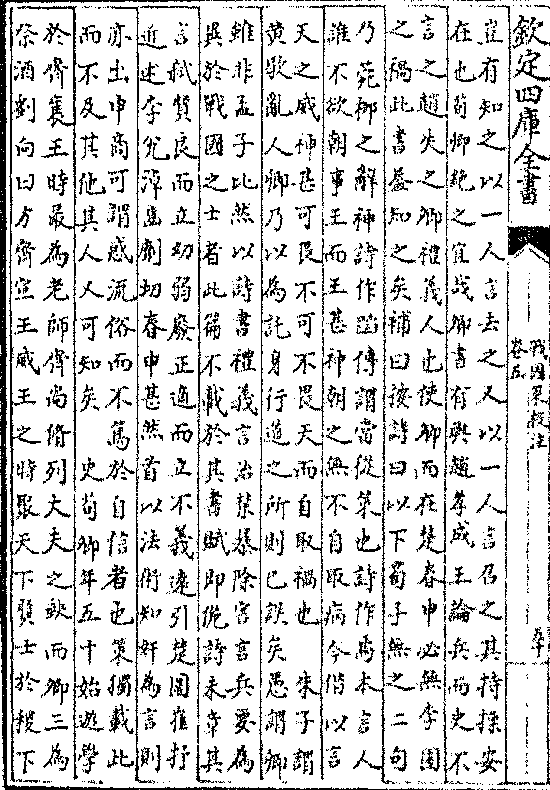 欽定四庫全書
戰國策校注
卷五
豈有知之以一人言去之又以一人言召之其持操安
在也荀卿絶之宜哉卿書有與趙孝成王論兵而史不
言之趙失之卿禮義人也使卿而在楚春申必無李園
之禍此書蓋知之矣補曰按詩曰以下荀子無之二句
乃菀柳之辭神詩作蹈傳謂當從策也詩作焉本言人
誰不欲朝事王而王甚神朝之無不自取病今借以言
天之威神甚可畏不可不畏天而自取禍也 朱子謂
黄歇亂人卿乃以為託身行道之所則已誤矣愚謂卿
雖非孟子比然以詩書禮義言治禁暴除害言兵要為
異於戰國之士者此篇不載於其書賦即佹詩末章其
言弑賢良而立幼弱廢正適而立不義逺引楚圍崔抒
近述李兌淖齒劘切春申甚然首以法術知奸為言則
亦出申商可謂惑流俗而不篤於自信者也策獨載此
而不及其他其人又可知矣 史荀卿年五十始遊學
於齊襄王時最為老師齊尚脩列大夫之缺而卿三為
祭酒劉向曰方齊宣王威王之時聚天下賢士於稷下